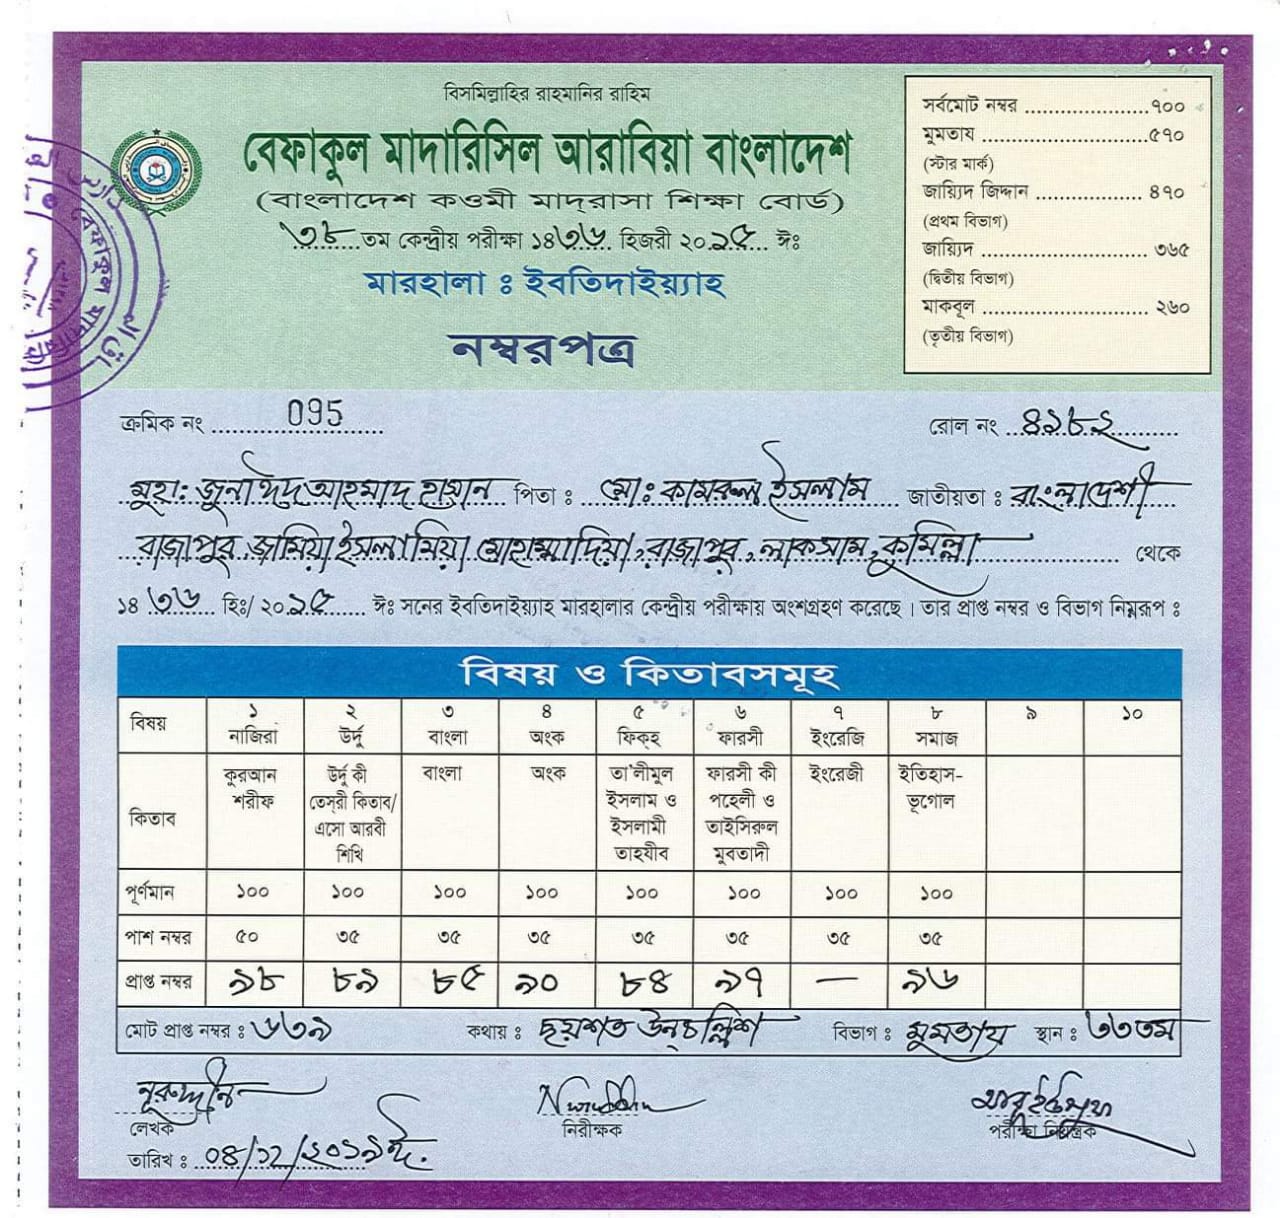 বিসমিল্লাহির রাহমানির রাহিম
বেফাকুল মাদারিসিল আরাবিয়া বাংলাদেশ
(বাংলাদেশ কওমী মাদ্‌রাসা শিক্ষা বোর্ড)
৩৮ তম কেন্দ্রীয় পরীক্ষা ১৪৩৬ হিজরী ২০১৫ ঈঃ
মারহালা : ইবতিদাইয়্যাহ
নম্বরপত্র
সর্বমোট নম্বর ....................৭০০
মুমতায ...........................৫৭০
(স্টার মার্ক)
জায়্যিদ জিদ্দান ...................... ৪৭০
(প্রথম বিভাগ)
জায়্যিদ ........................... ৩৬৫
(দ্বিতীয় বিভাগ)
মাকবূল ........................... ২৬০
(তৃতীয় বিভাগ)
ক্রমিক নং 095 রোল নং ৪১৮২
মুহা: জুনাঈদ আহমাদ হাসান পিতা : মো: কামরুল ইসলাম জাতীয়তা : বাংলাদেশী
রাজাপুর জামিয়া ইসলামিয়া মোহাম্মাদিয়া, রাজাপুর, লাকসাম, কুমিল্লা থেকে
১৪৩৬ হিঃ/ ২০১৫ ঈঃ সনের ইবতিদাইয়্যাহ মারহালার কেন্দ্রীয় পরীক্ষায় অংশগ্রহণ করেছে। তার প্রাপ্ত নম্বর ও বিভাগ নিম্নরূপ :
বিষয় ও কিতাবসমূহ
বিষয় ১ নাজিরা ২ উর্দু ৩ বাংলা ৪ অংক ৫ ফিক্‌হ ৬ ফারসী ৭ ইংরেজি ৮ সমাজ ৯ ১০
কিতাব কুরআন শরীফ উর্দু কী তেস্‌রী কিতাব/ এসো আরবী শিখি বাংলা অংক তা'লীমুল ইসলাম ও ইসলামী তাহযীব ফারসী কী পহেলী ও তাইসিরুল মুবতাদী ইংরেজী ইতিহাস-ভূগোল
পূর্ণমান ১০০ ১০০ ১০০ ১০০ ১০০ ১০০ ১০০ ১০০
পাশ নম্বর ৫০ ৩৫ ৩৫ ৩৫ ৩৫ ৩৫ ৩৫ ৩৫
প্রাপ্ত নম্বর ৯৮ ৮৯ ৮৫ ৯০ ৮৪ ৯৭ — ৯৬
মোট প্রাপ্ত নম্বর : ৬৩৯ কথায় : ছয়শত উনচল্লিশ বিভাগ : মুমতায স্থান : ৩৩তম
নূরুদ্দীন
লেখক নিরীক্ষক পরীক্ষা নিয়ন্ত্রক
তারিখ : ০৪/১২/২০১৯ঈ.